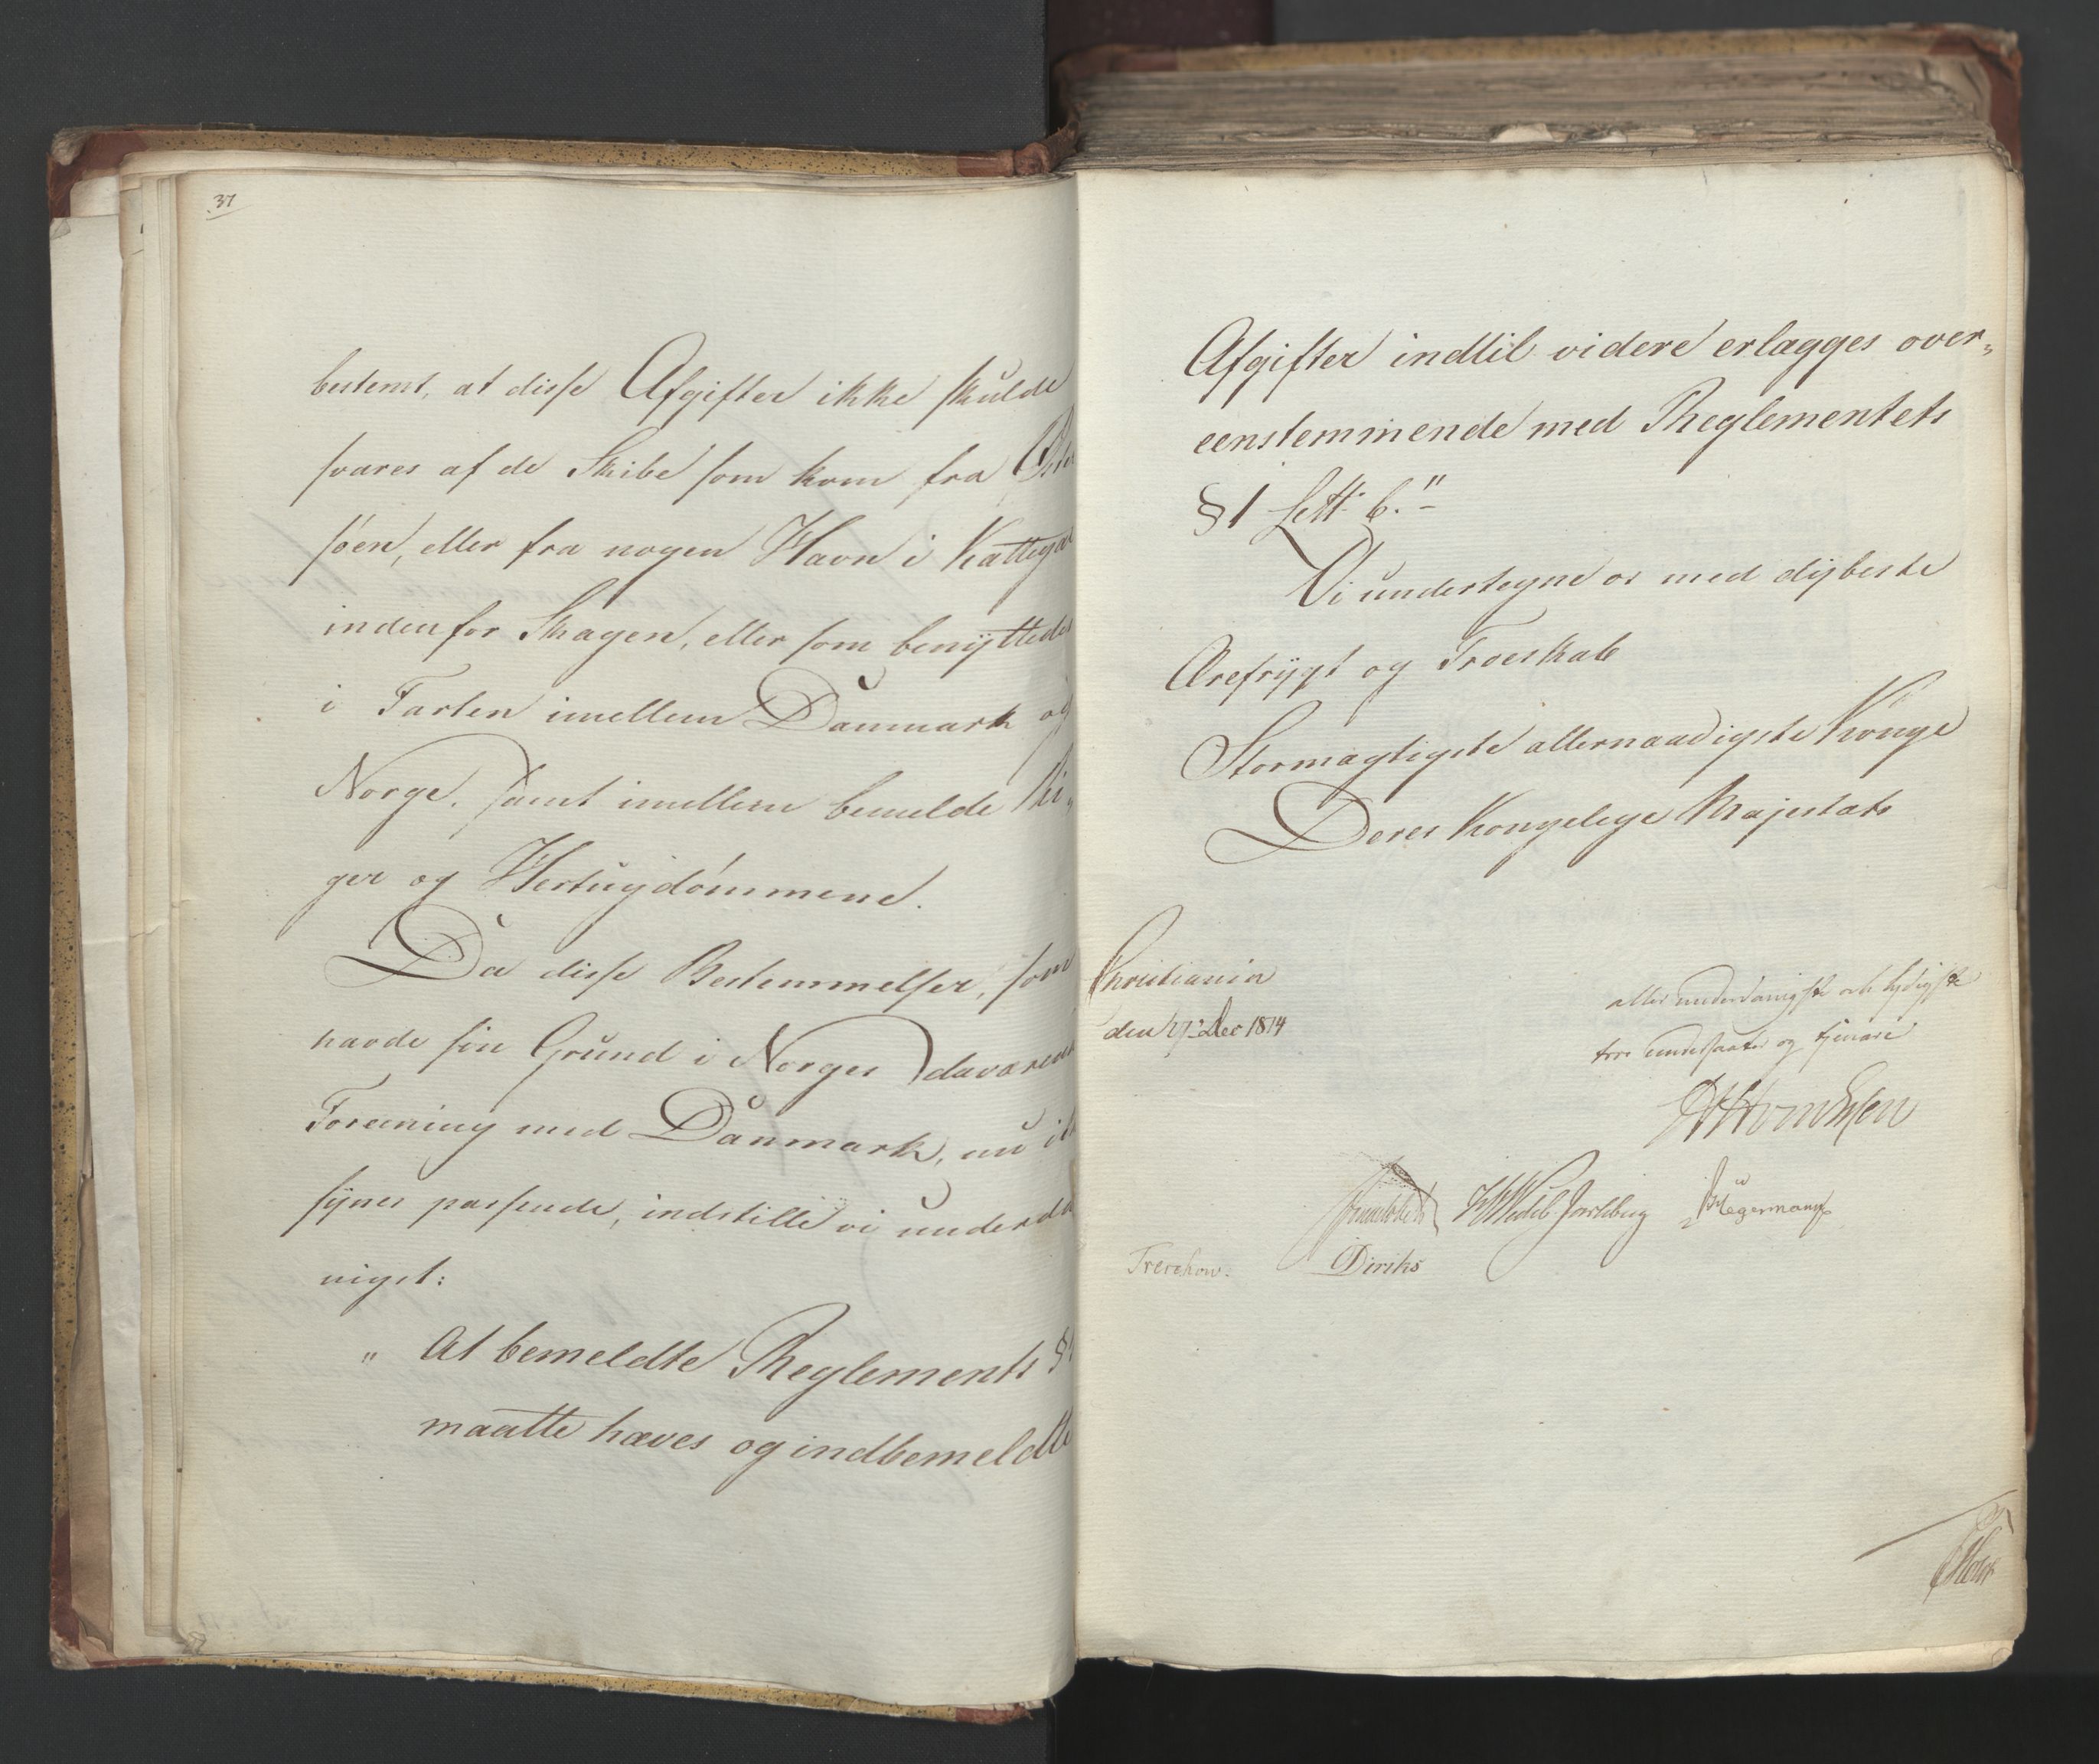 37
bestemt, at disse Afgifter ikke skulde
svares af de Skibe som kom fra Øster
søen, eller fra nogen Havn i Kattegat
indenfor Skagen, eller som benyttedes
i Farten imellem Danmark og
Norge, samt imellem bemeldte Ri„
ger og Hertugdømmene.
Da disse Bestemmelser, som
havde sin Grund i Norges daværende
Forening med Danmark, nu ik
synes passende, indstille vi underda
nigst:
„ At bemeldte Reglements §
maatte hæves og indbemeldte
Afgifter indtil videre erlægges over„
eenstemmende med Reglementets
§ 1 Litt b."
Vi undertegne os med dybeste
Ærefrygt og Troeskab
Stormægtigste allernaadigste Konge
Deres Kongelige Majestæts
Christiania
den 27 Dec 1814
allerunderdanigste och lydigste
troe undersaatter og tjenare
Sommerhielm
HWedel Jarlsberg
Hegermann
Treschow.
Diriks